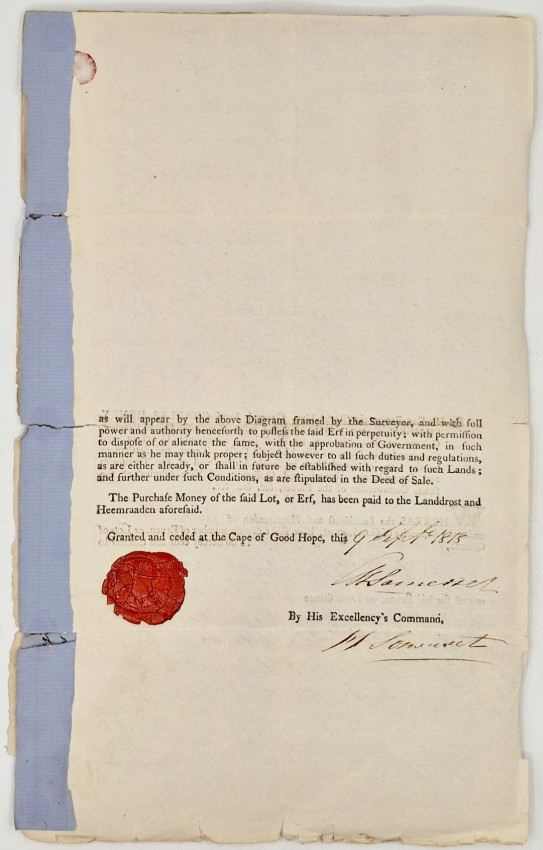 as will appear by the above Diagram framed by the Surveyor, and with full
power and authority henceforth to poſſeſs the ſaid Erf in perpetuity; with permiſſion
to diſpoſe of or alienate the ſame, with the approbation of Government, in ſuch
manner as he may think proper; ſubject however to all ſuch duties and regulations,
as are either already, or ſhall in future be eſtabliſhed with regard to ſuch Lands;
and further under ſuch Conditions, as are ſtipulated in the Deed of Sale.
The Purchaſe Money of the ſaid Lot, or Erf, has been paid to the Landdroſt and
Heemraaden aforeſaid.
Granted and ceded at the Cape of Good Hope, this 9 Septr 1818
Somerset
By His Excellency's Command,
Somerset